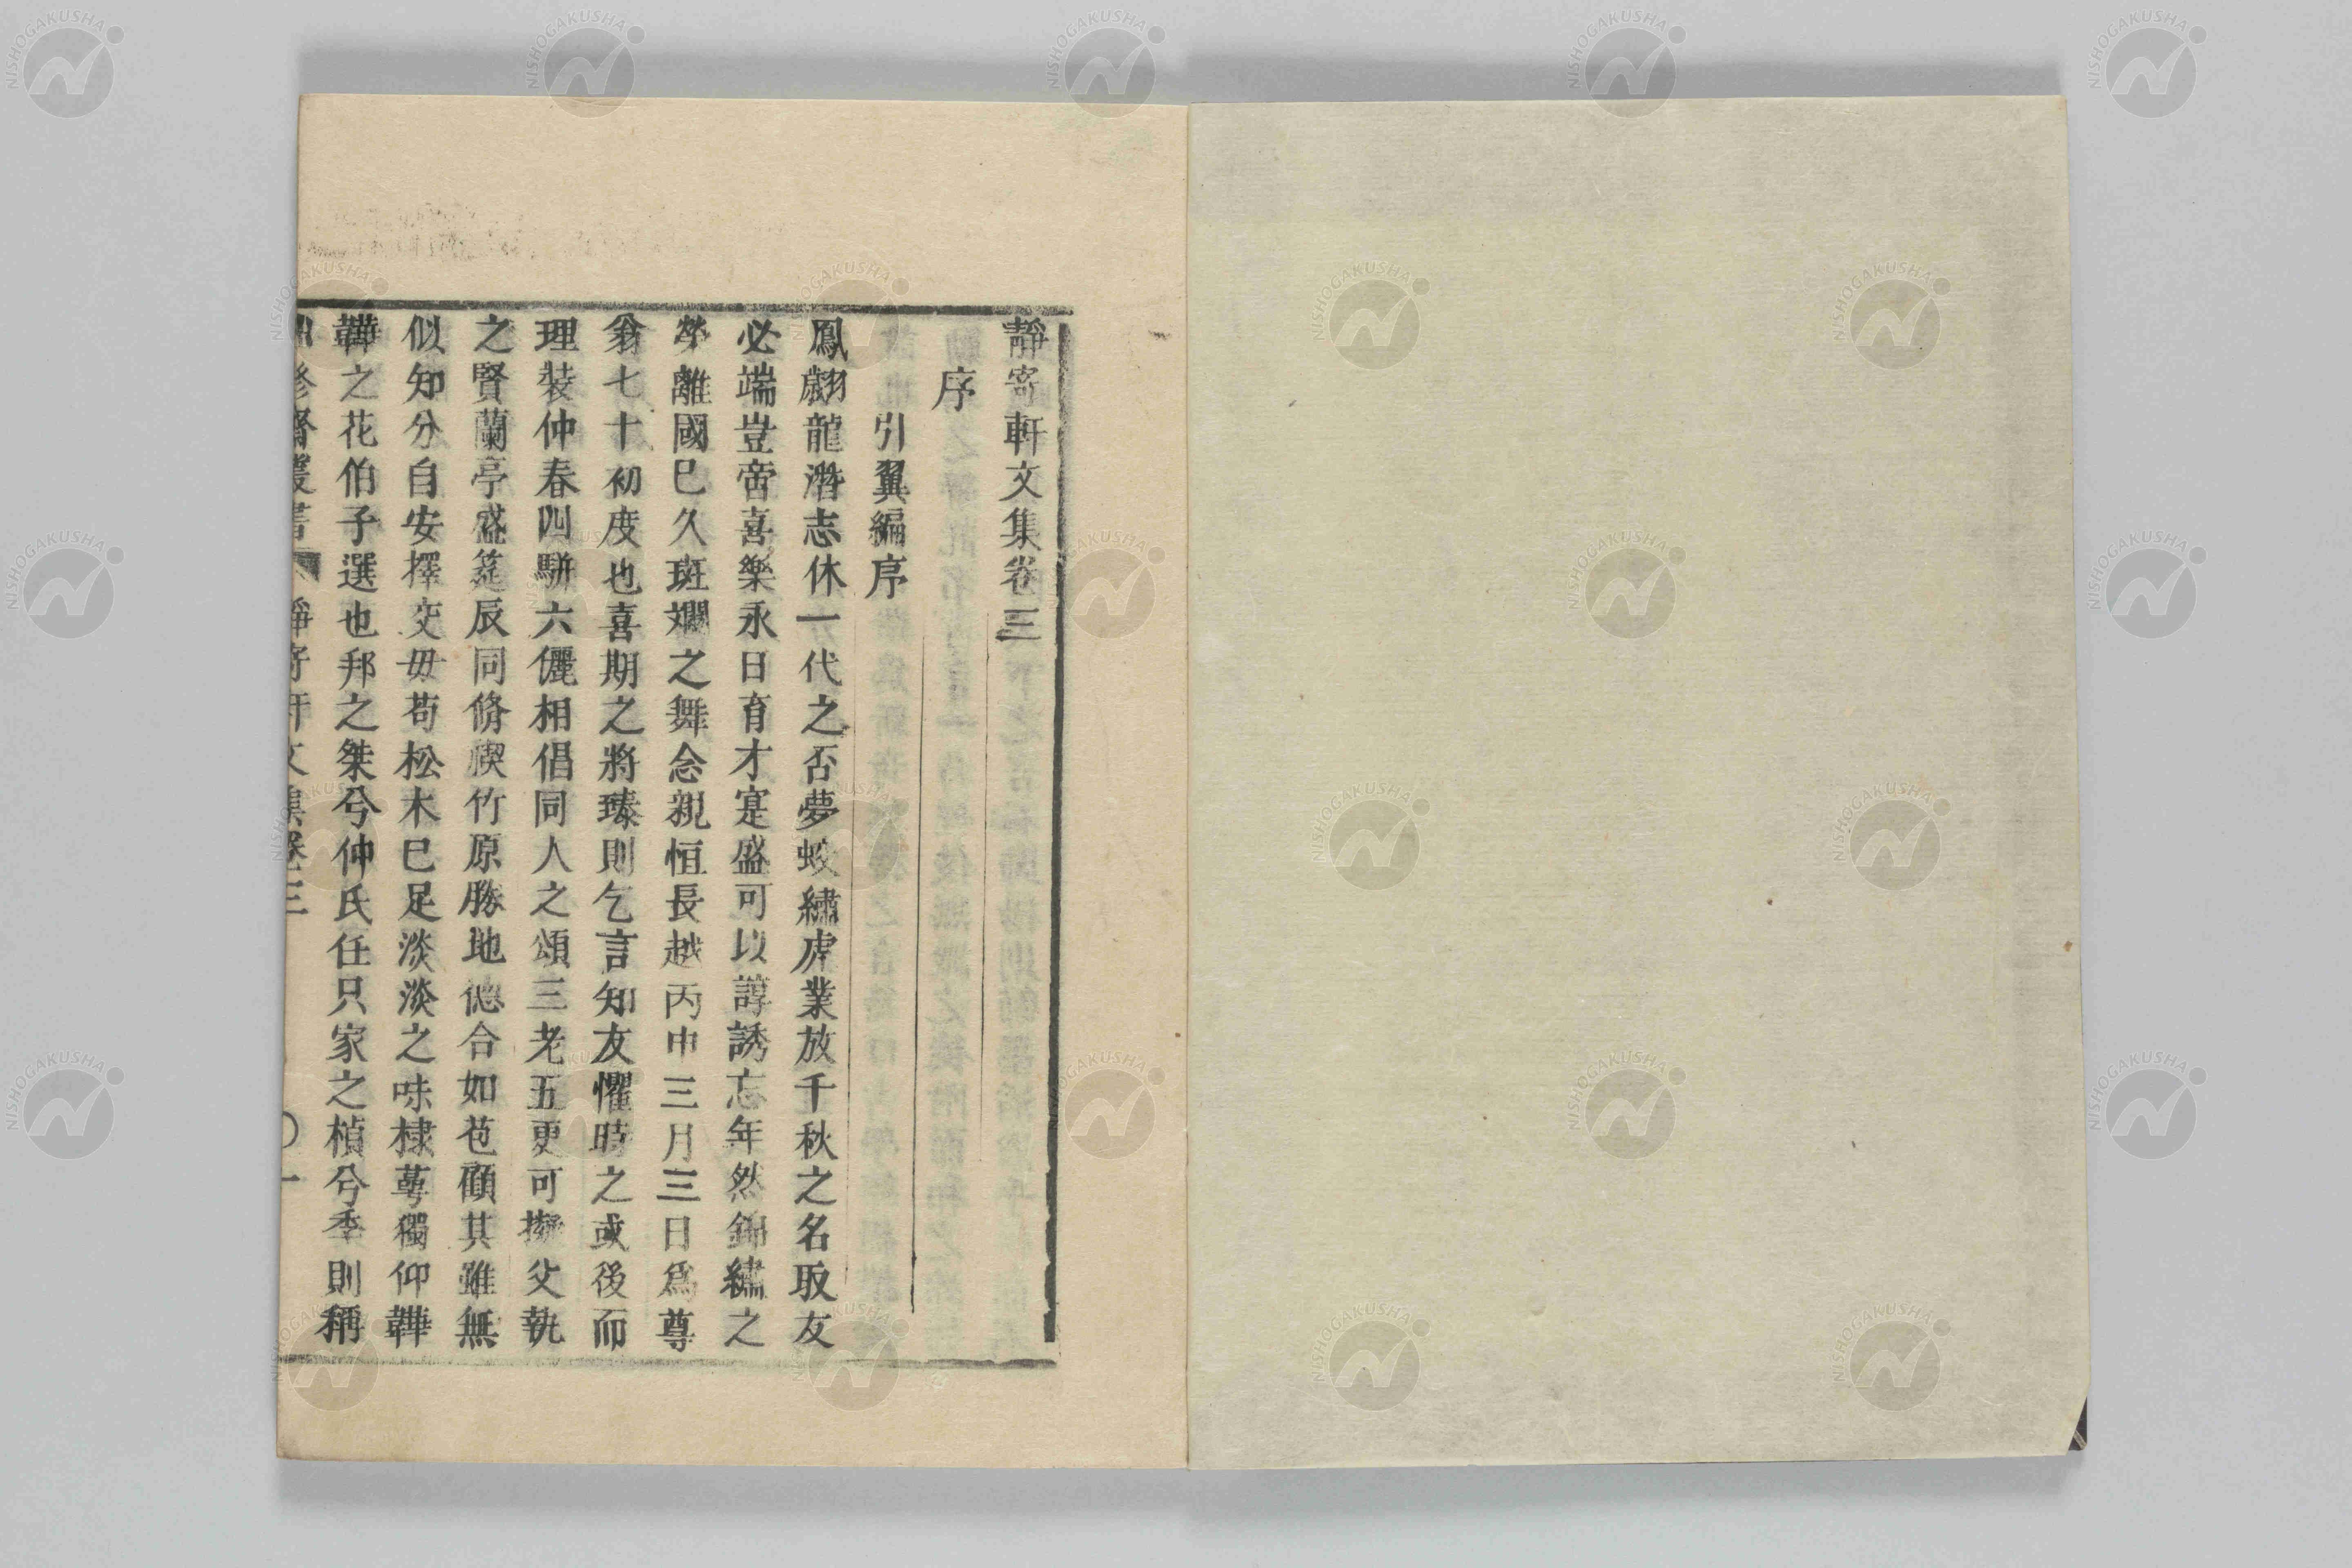 靜寄軒文集卷三
序
引翼編序
鳳翽龍潛志休一代之否夢蛟繡虎業放千秋之名取友
必端豈啻喜樂永日育才寔盛可以諄誘忘年然錦繡之
齋離國已久斑斕之舞念親恒長越丙申三月三日爲尊
翁七十初度也喜期之將臻則乞言知友懼時之或後而
理裝仲春四駢六儷相倡同人之頌三老五更可擬父執
之賢蘭亭盛筵辰同脩禊竹原勝地德合如苞顧其雖無
似知分自安擇交毋苟松木已足淡淡之味棣萼獨仰韡
韡之花伯子選也邦之桀兮仲氏任只家之楨兮季則稱
NISHOGAKUSHA